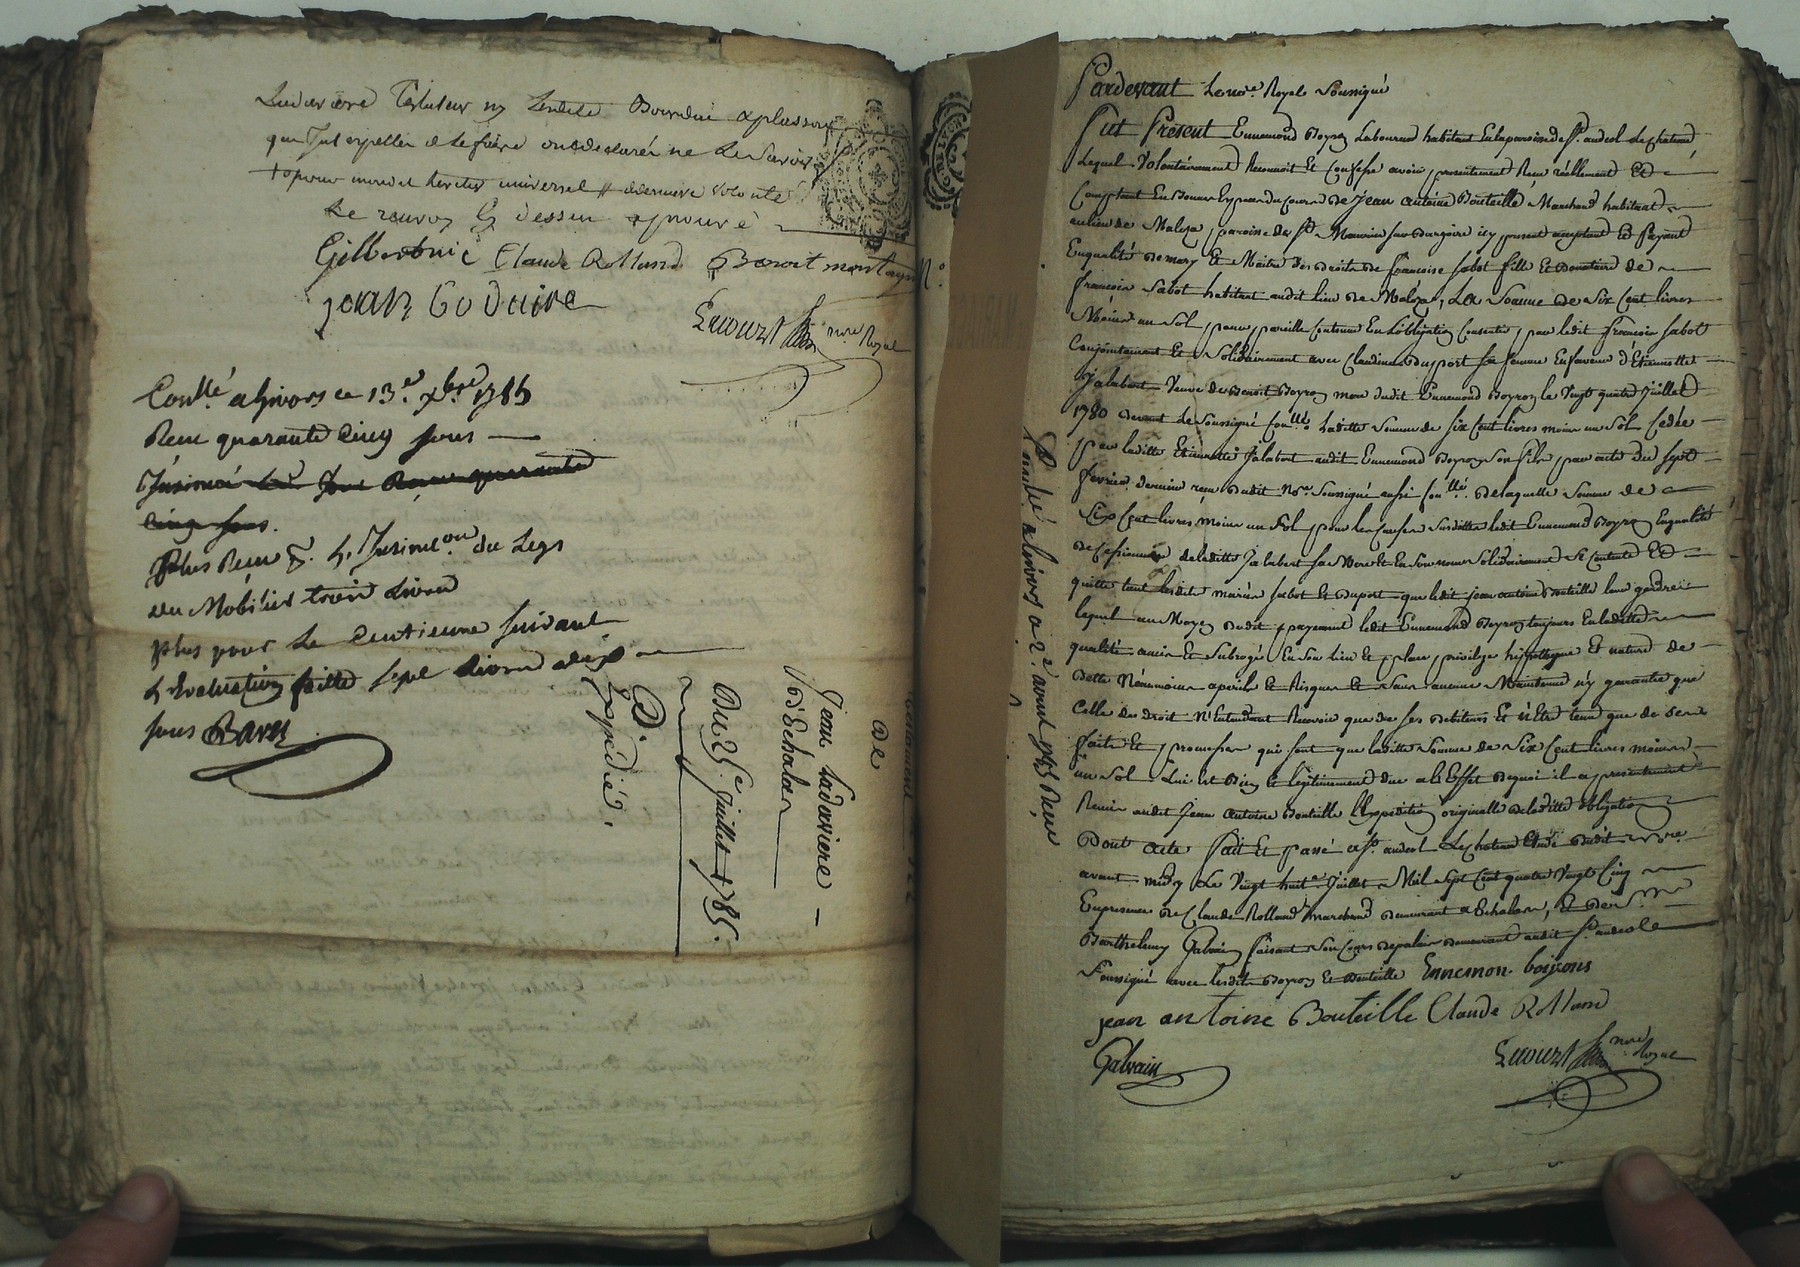 Ladavière Testateur ny Benoit Bourdin a plus sou
que Interpeller de le faire ont declaré ne le Savoir
+ pour mon det heritier universel # derniere volonté
Le renvoy Cy dessus aprouvé
Gilbertonie Claude Rolland Benoit montagn
jean Goduire
Lucourt nore Royal
Conllé a Givors ce 13e Xbre 1785
Reçu quarante Cinq sous
Insinué led Jour Reçu quarante
cinq sous.
Plus Reçu p. L'Insinuon du Legs
du Mobilier trois Livres
plus pour Le Centieme suivant
L'Evaluation faitte sept Livres dix
sous Baron
de
Jean Ladaviere
d'Echalas
Du 25e Juillet 1785.
Expédié.
N°
Pardevant Le nore Royal Soussigné
Fut Present Ennemond Boyron Laboureur habitant En la paroisse de St. andeol Le Chateau,
Lequel Volontairement Reconnoit Et Confesse avoir presentement Reçu réellement Et
Comptant En Bonnes Especes du Cours de Jean antoine Bouteille Marchand habitant
au lieu de Maleza paroisse de St. Maurice sur Dargoire icy present acceptant Et Payant
En qualité de mary Et Maitre des droits de françoise sabot fille Et Donataire de
françois Sabot habitant audit lieu de Maleza, La Somme de Six Cent livres
Moins un Sol, pour pareille Contenue En L'obligation Consentie par ledit françois sabot
Conjointement Et Solidairement avec Claudine Duport sa femme En faveur d'Etiennette
Jalabert Veuve de Benoit Boyron mere dudit Ennemond Boyron le Vingt quatre Juillet
1780 devant Le Soussigné Conllé. Laditte Somme de six Cent livres moins un Sol Cedée
par laditte Etiennette Jalabert audit Ennemond Boyron Son fils, par acte du sept
fevrier dernier reçu dudit Nore Soussigné aussi Conllé. De laquelle Somme de
Six Cent livres moins un Sol, pour les Causes Susdittes ledit Ennemond Boyron En qualité
de Cessionnaire de laditte Jalabert sa Mere Et En Son nom Solidairement Se Contente Et
quitte tant lesdits mariés Sabot Et Duport que ledit jean antoine Bouteille leur gendre
lequel au Moyen dudit payement ledit Ennemond Boyron toujours En laditte
qualité a mis Et Subrogé En Son lieu Et place, privilege hypotheque Et nature de
Dette Néanmoins a peril Et Risque Et Sans aucune Maintenue n'y garantie que
Celle de droit N'Entendant Recevoir que de ses debiteurs Et n'Etre tenu que de Ses
faits Et promesses qui sont que laditte Somme de Six Cent livres moins
un Sol Lui est Bien Et legitimement due a L'Effet de quoi il a presentement
Remis audit Jean Antoine Bouteille L'Expedition originalle de laditte obligation
Dont acte Fait Et Passé a St. andeol Le Chateau Etude dudit nore
avant midy Le Vingt huite Juillet Mil Sept Cent quatre Vingt Cinq
En presence de Claude Rolland marchand demeurant a Echalas, Et de Sr.
Barthelemy Galvain faisant Son Cours de palais demeurant audit St. andeol
Soussigné avec lesdits Boyron Et Bouteille Ennemon. boirons
jean antoine Bouteille Claude Rolland
Galvain
Lucourt nore Royal
Conllé a Givors a 2e aoust 1785 Reçu